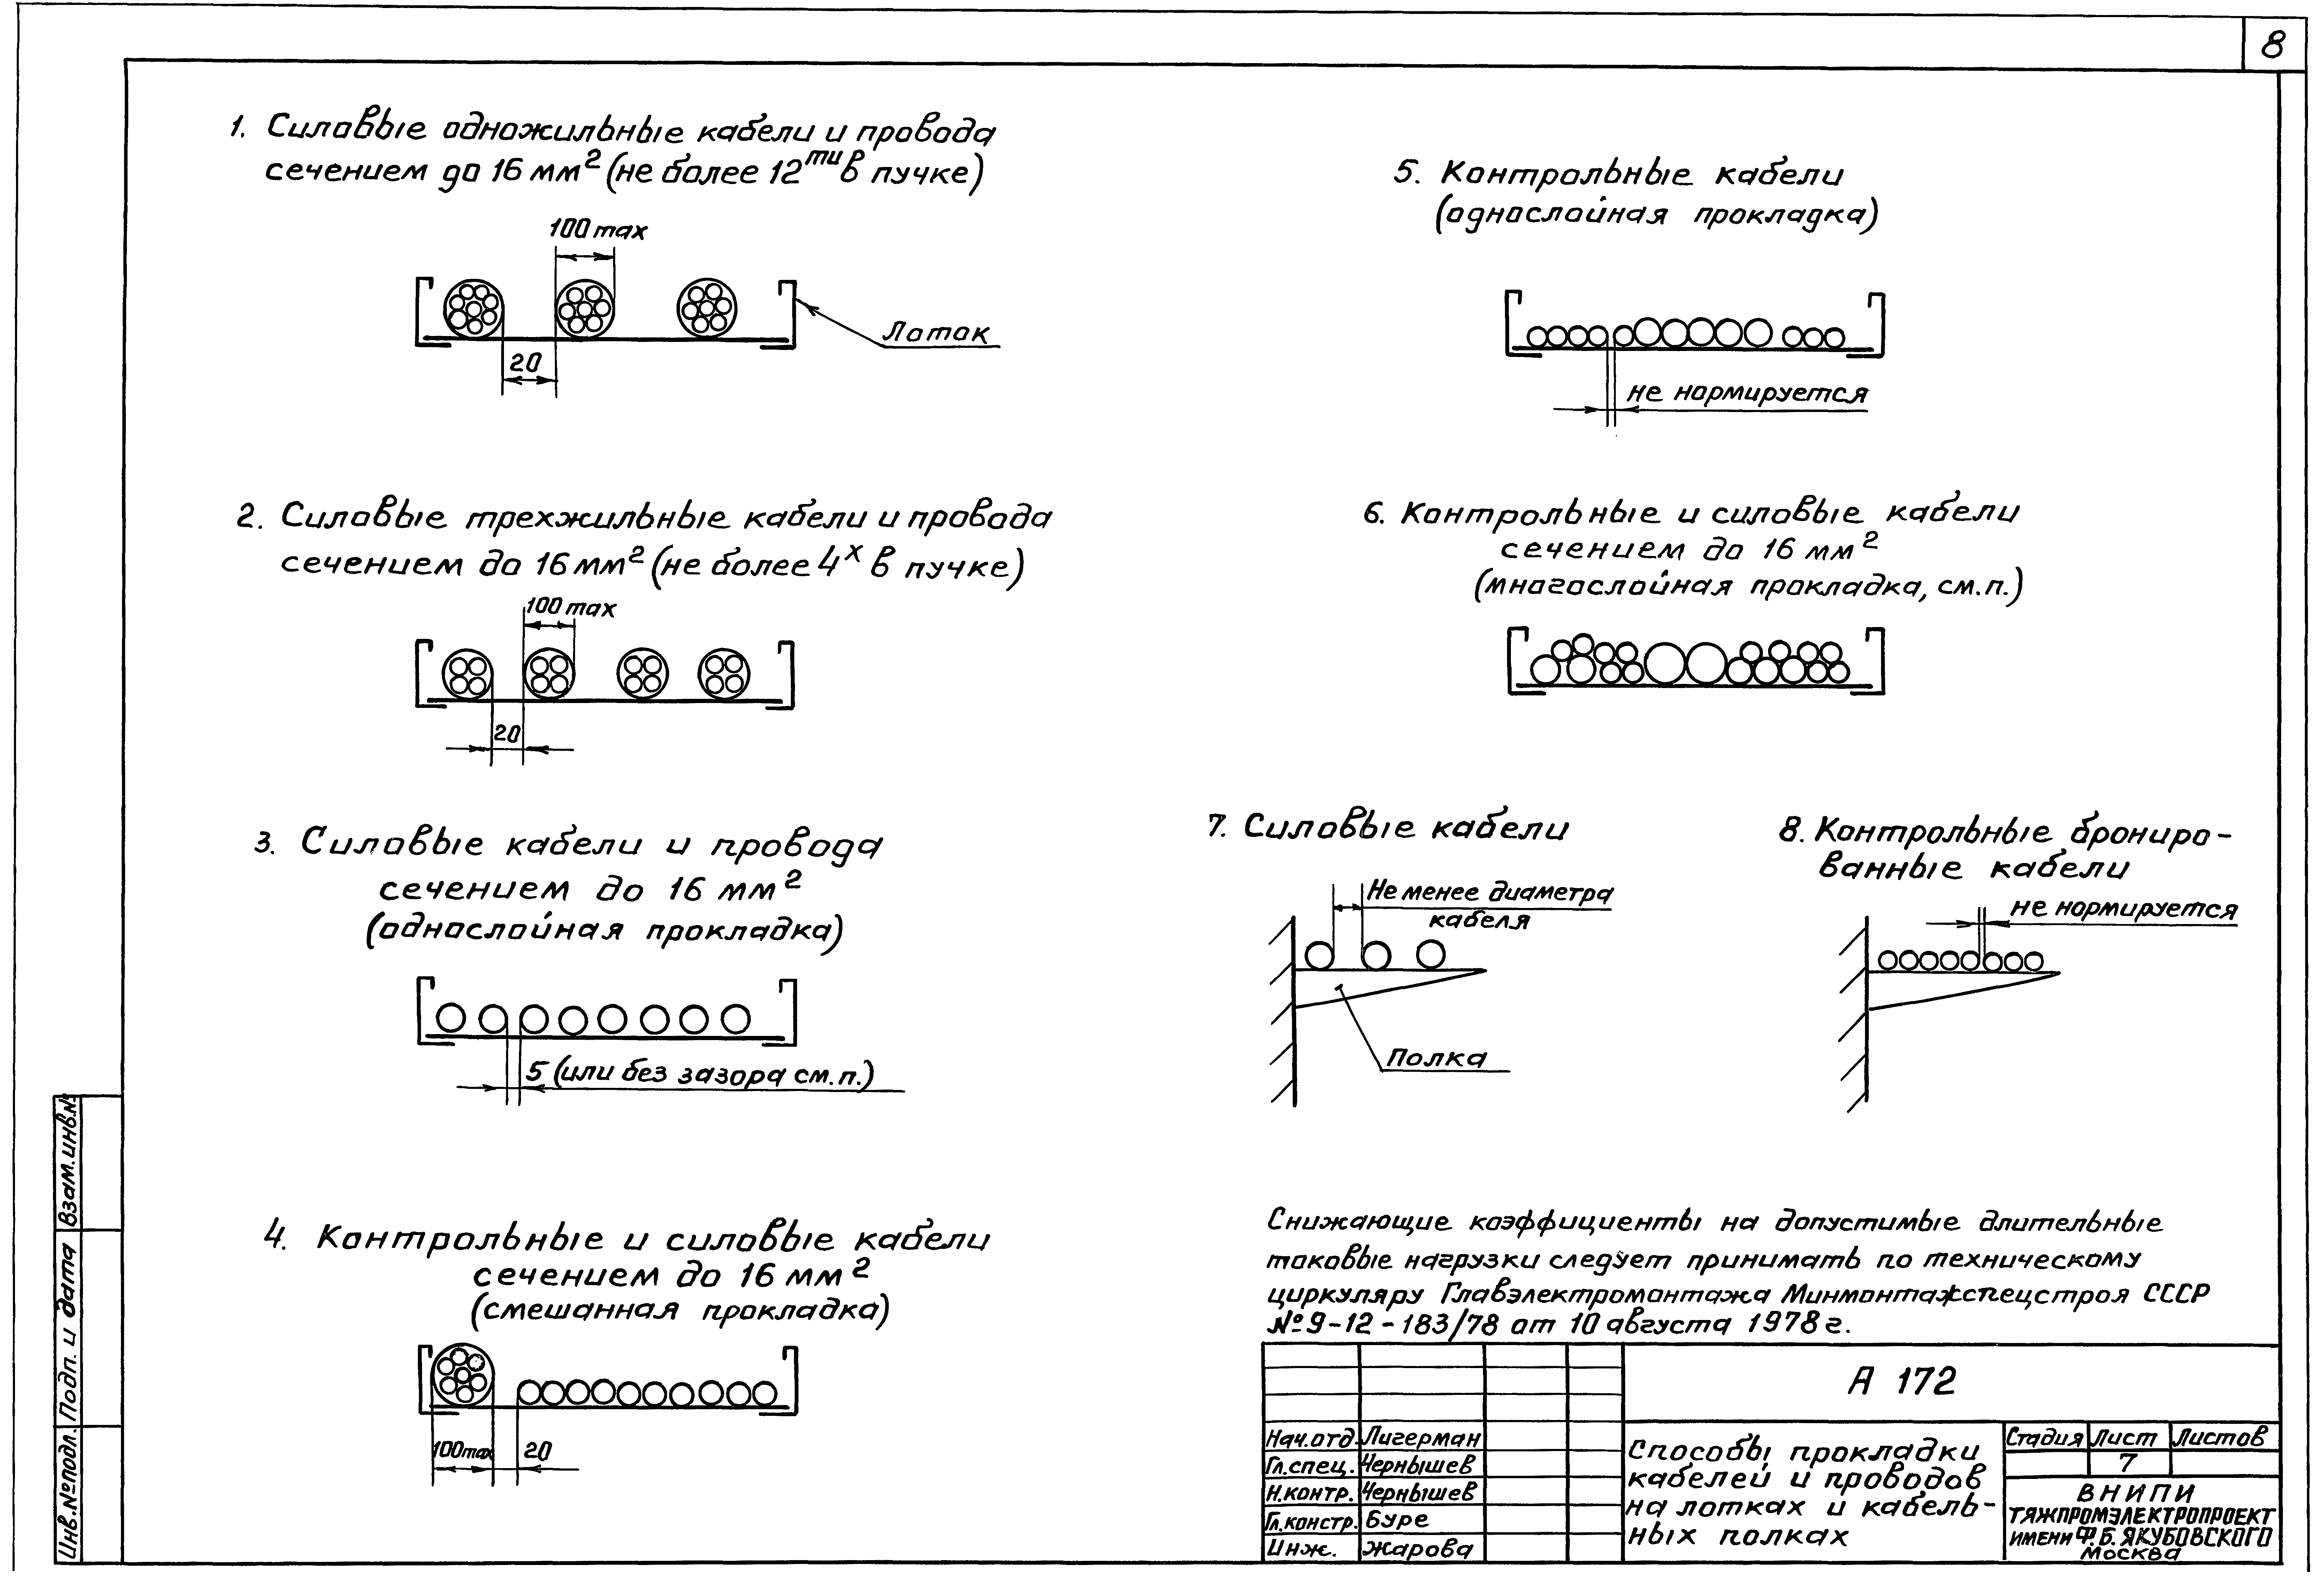 8
1. Силовые одножильные кабели и провода
сечением до 16 мм² (не более 12ти в пучке)
100 max
Лоток
20
2. Силовые трехжильные кабели и провода
сечением до 16 мм² (не более 4х в пучке)
100 max
20
3. Силовые кабели и провода
сечением до 16 мм²
(однослойная прокладка)
5 (или без зазора см.п.)
4. Контрольные и силовые кабели
сечением до 16 мм²
(смешанная прокладка)
100 max
20
5. Контрольные кабели
(однослойная прокладка)
не нормируется
6. Контрольные и силовые кабели
сечением до 16 мм²
(многослойная прокладка, см.п.)
7. Силовые кабели
Не менее диаметра
кабеля
Полка
8. Контрольные брониро-
ванные кабели
не нормируется
Снижающие коэффициенты на допустимые длительные
токовые нагрузки следует принимать по техническому
циркуляру Главэлектромонтажа Минмонтажспецстроя СССР
№ 9-12-183/78 от 10 августа 1978 г.
А 172
Нач.отд. Лигерман
Гл.спец. Чернышев
Н.контр. Чернышев
Гл.констр. Буре
Инж. Жарова
Способы прокладки
кабелей и проводов
на лотках и кабель-
ных полках
Стадия Лист Листов
7
ВНИПИ
ТЯЖПРОМЭЛЕКТРОПРОЕКТ
ИМЕНИ Ф.Б. ЯКУБОВСКОГО
Москва
Взам.инв.№
Подп. и дата
Инв.№подл.